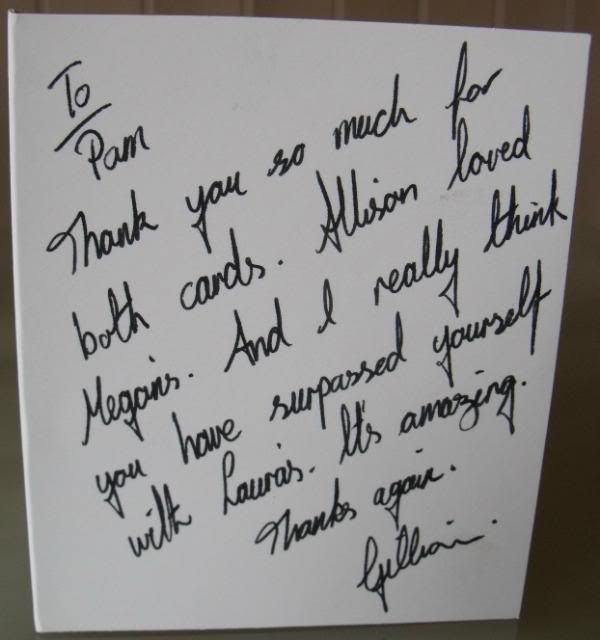 To
Pam
Thank you so much for
both cards. Allison loved
Megan's. And I really think
you have surpassed yourself
with Laura's. It's amazing.
Thanks again.
Gillian.